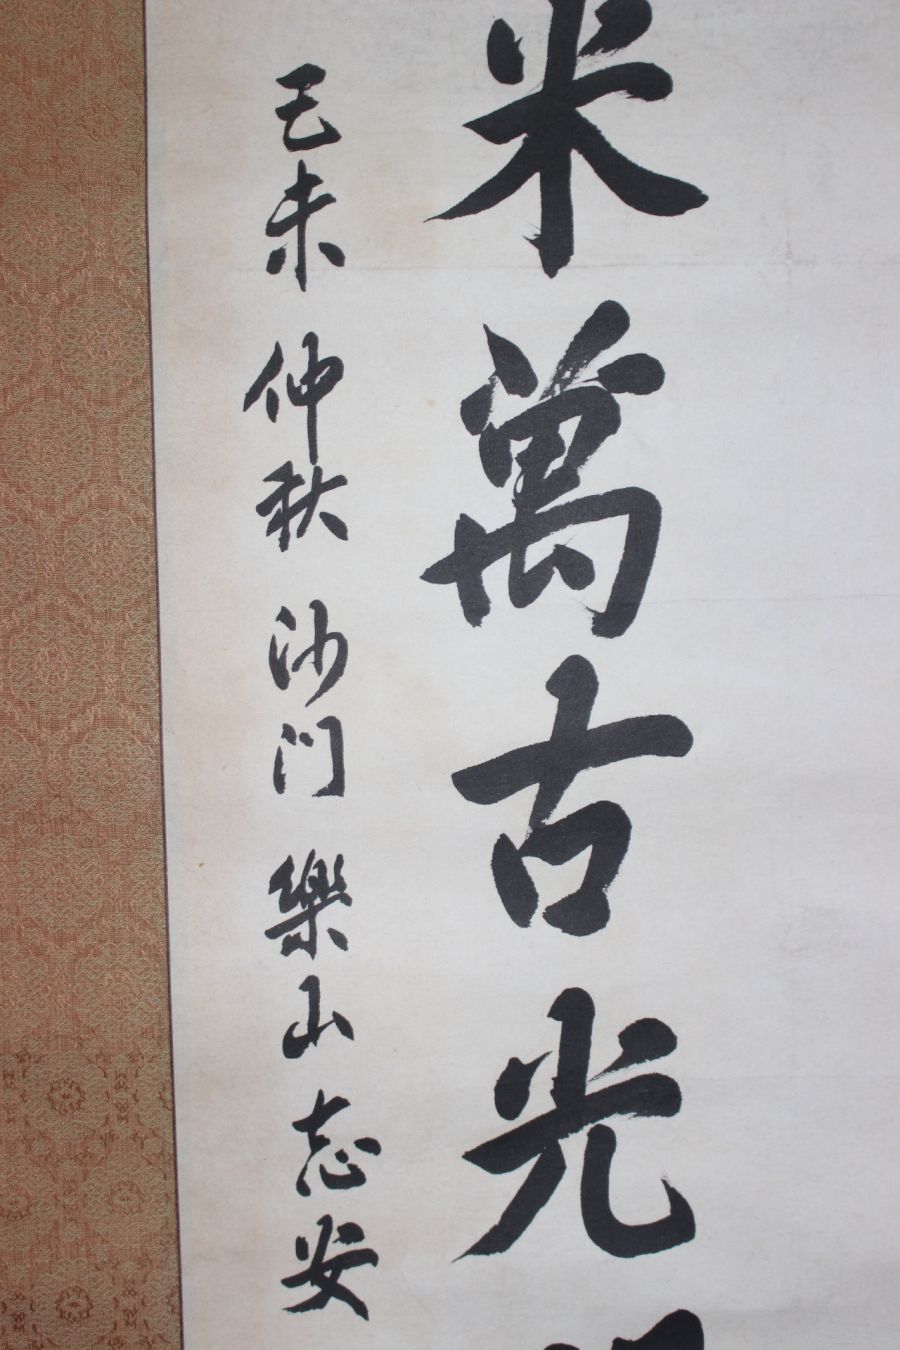 米萬古光
己未 仲秋 沙门 樂山 志安